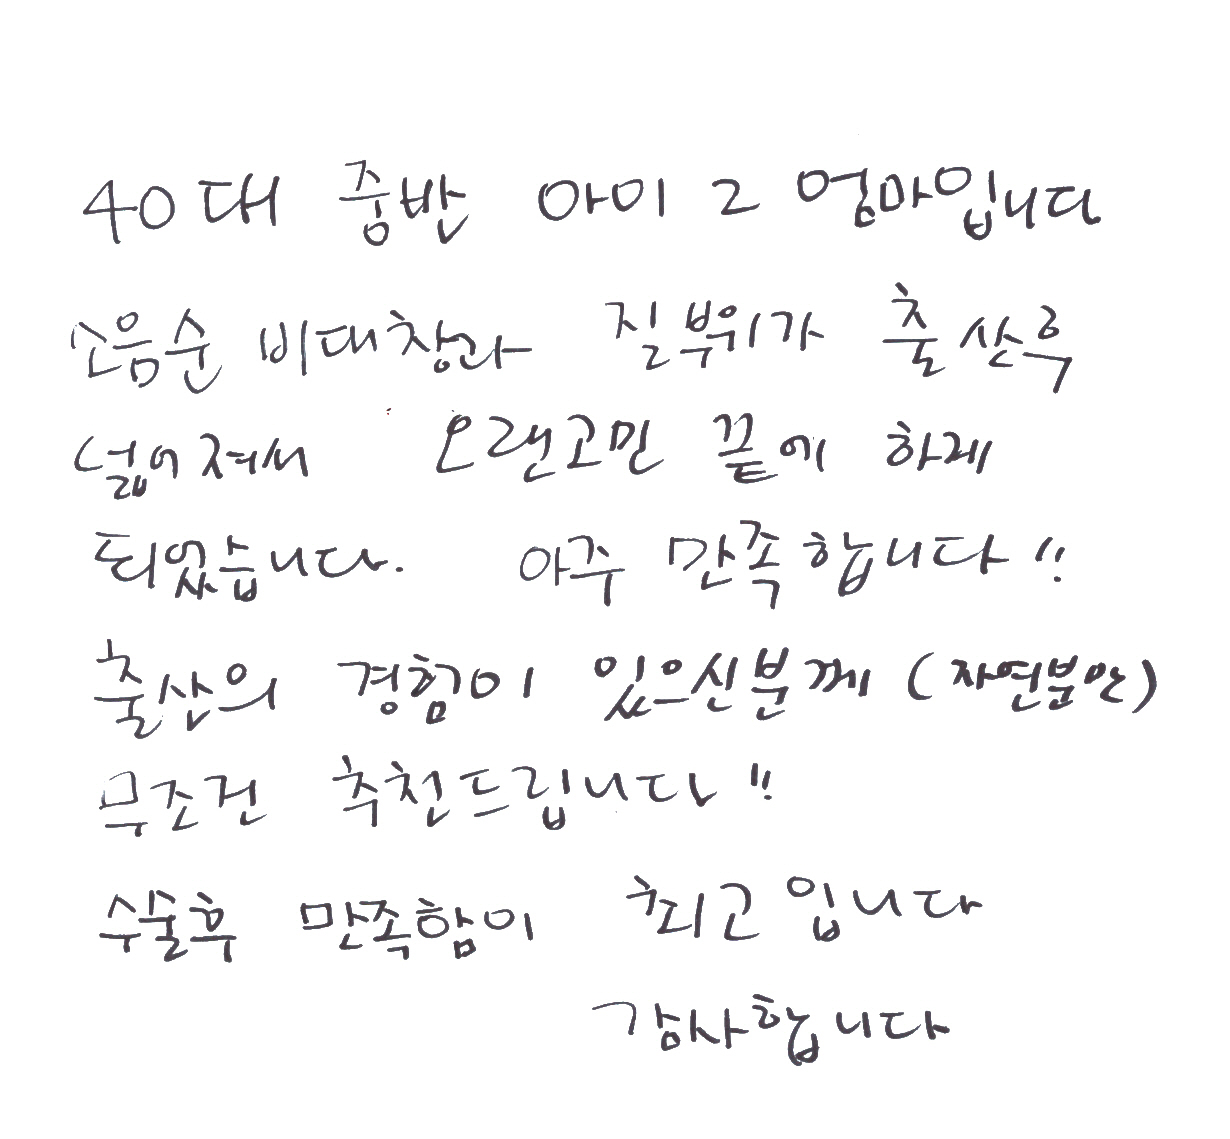 40대 중반 아이 2 엄마입니다
소음순 비대칭과 질부위가 출산후
넓어져서 오랜고민 끝에 하게
되었습니다. 아주 만족합니다!!
출산의 경험이 있으신분께 (자연분만)
무조건 추천드립니다!!
수술후 만족함이 최고입니다
감사합니다